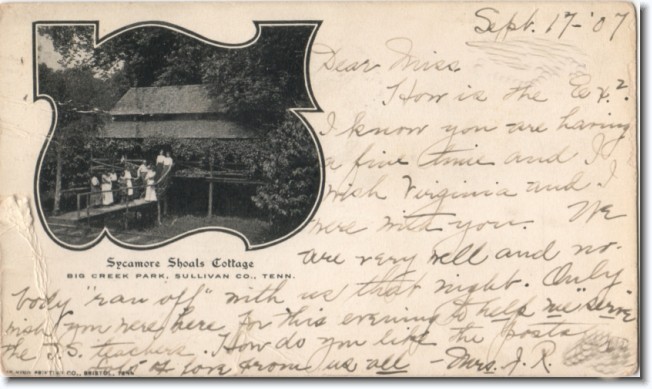 Sept. 17-'07
Dear Miss
How is the Ex?
I know you are having
a fine time and I
wish Virginia and I
were with you. We
are very well and no-
body "ran off" with us that night. Only
wish you were here for this evening to help me "serve"
the S. S. teachers. How do you like the posts
of love from us all - Mrs. J. R.
Sycamore Shoals Cottage
BIG CREEK PARK, SULLIVAN CO., TENN.
KING PRINTING CO., BRISTOL, TENN